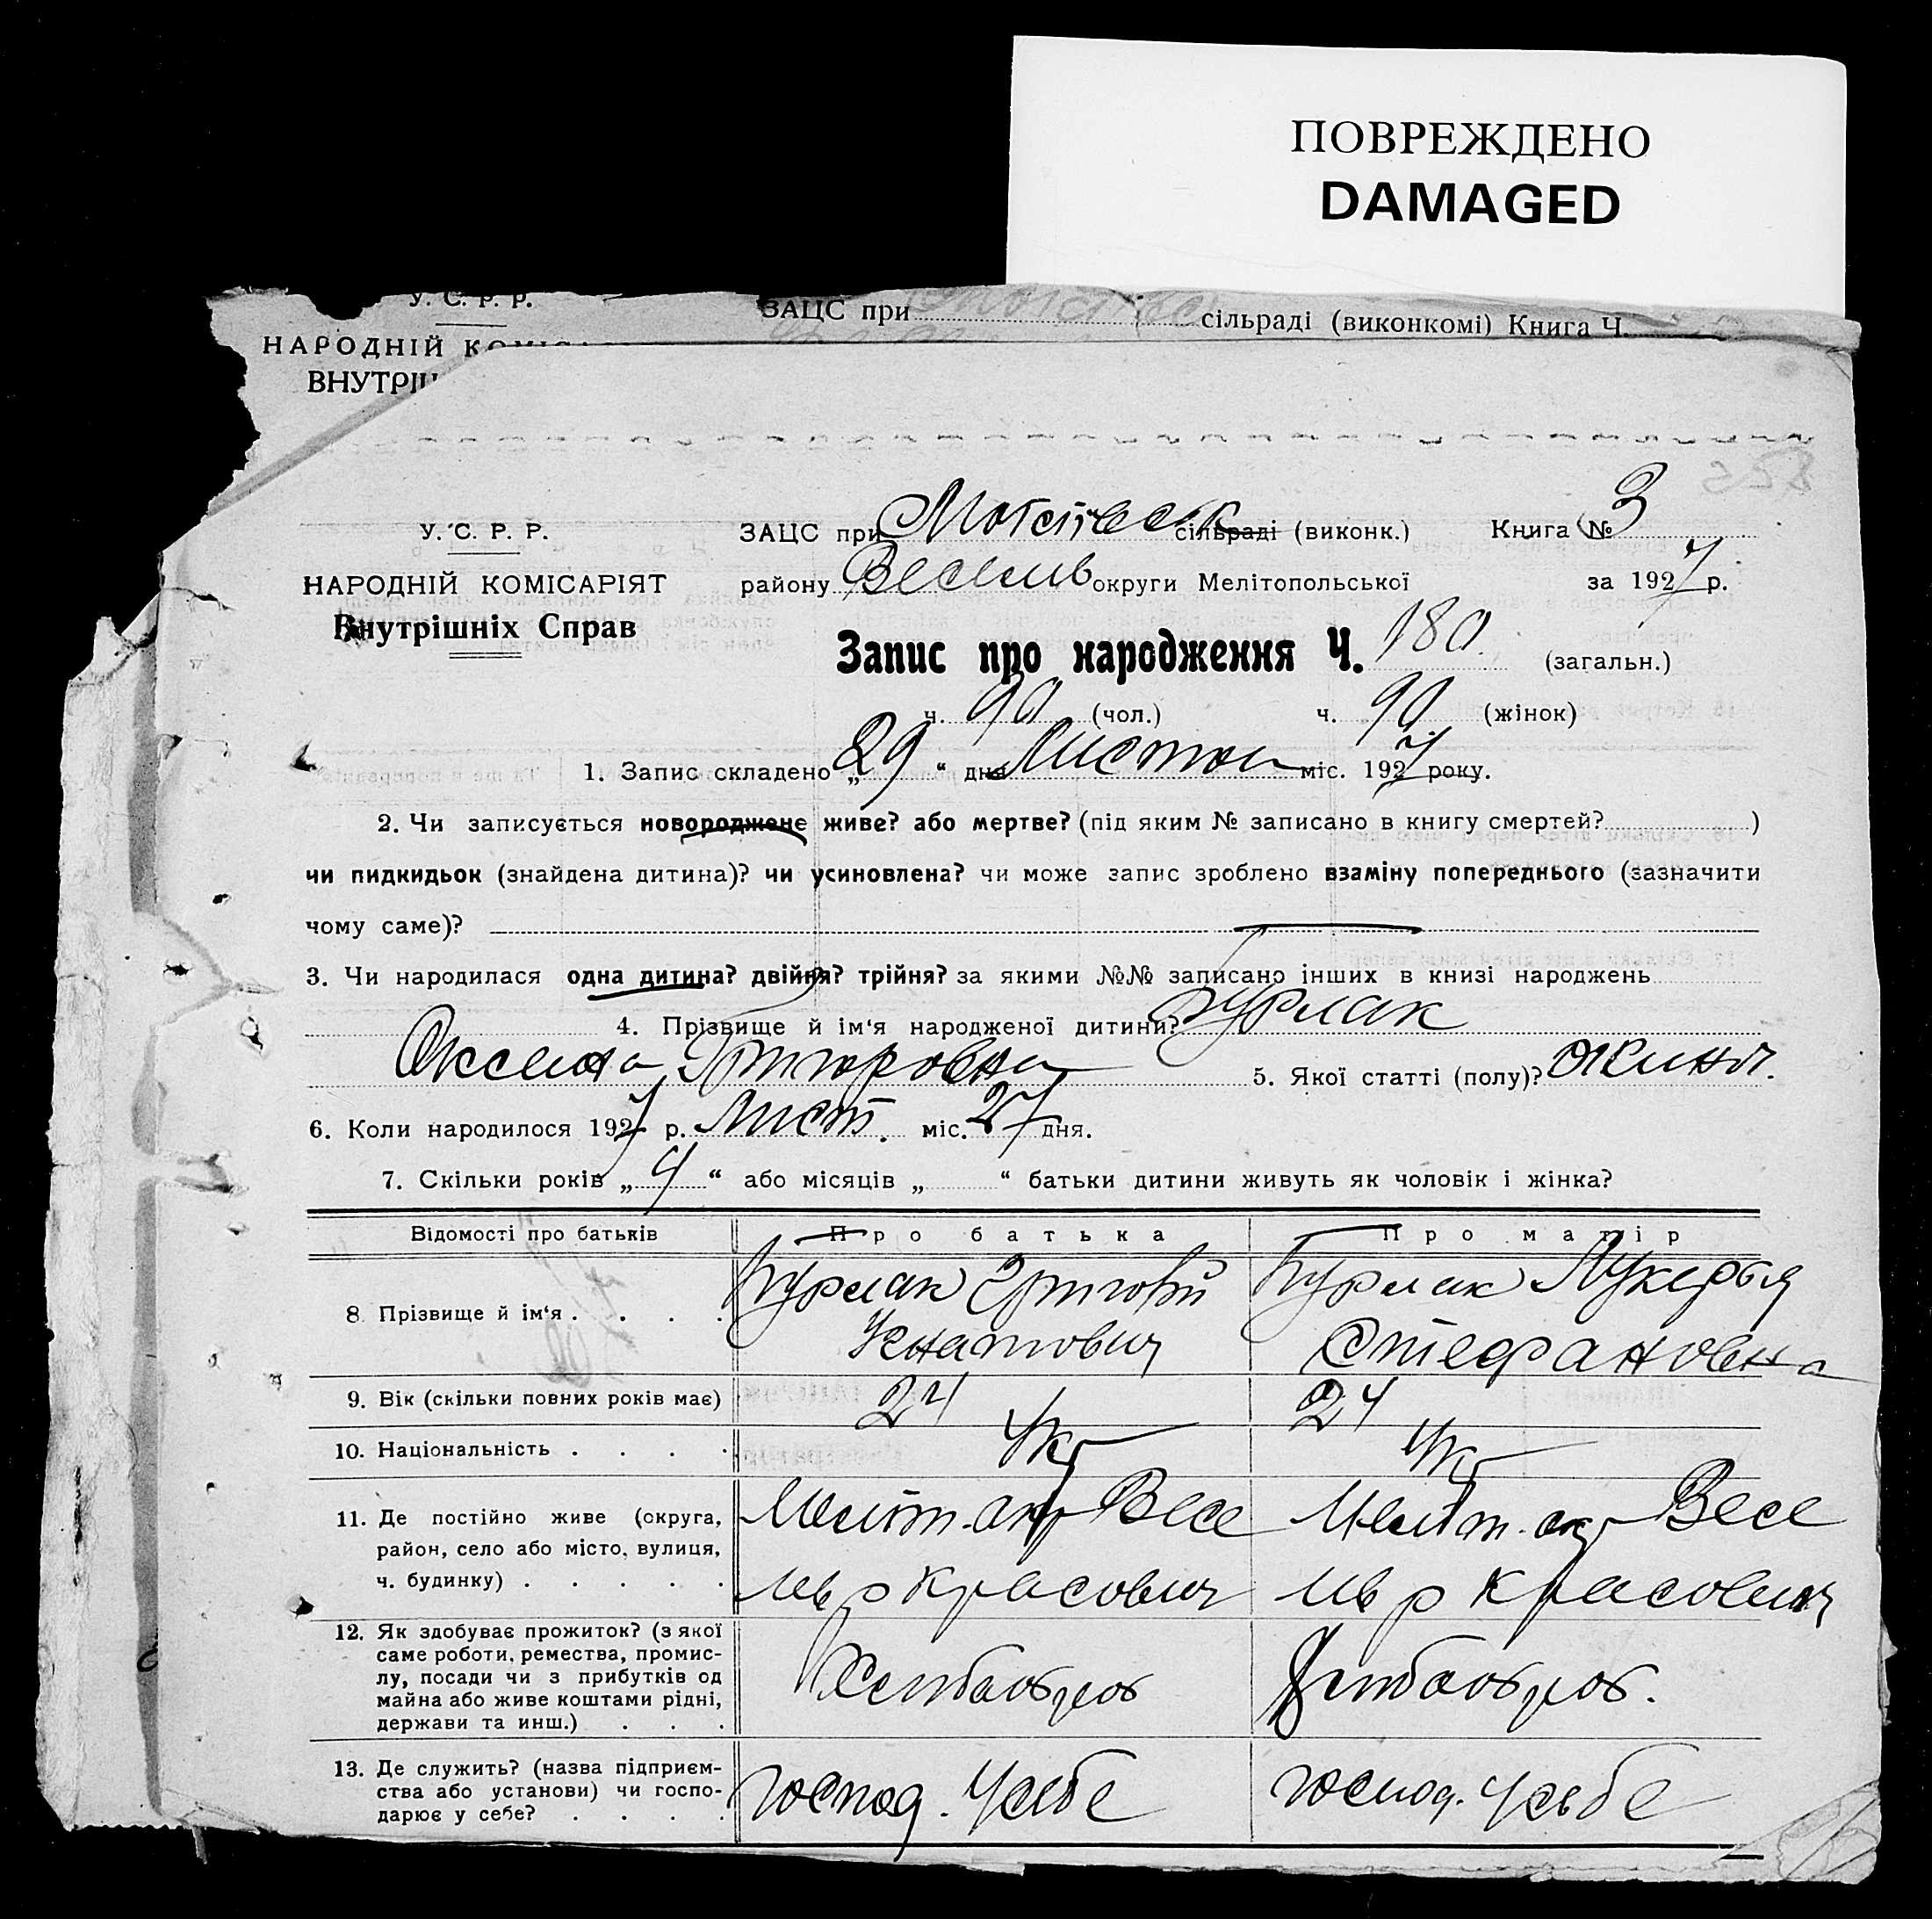 ПОВРЕЖДЕНО
DAMAGED
У. С. Р. Р.
ЗАЦС при сільраді (виконкомі) Книга Ч.
НАРОДНІЙ
ВНУТРІШ
ЗАЦС при сільраді (виконк.) Книга № 3
У. С. Р. Р.
району Веселів округи Мелітопольської за 1927 р.
НАРОДНІЙ КОМІСАРІЯТ
Внутрішніх Справ
Запис про народження Ч. 180. (загальн.)
ч. 90 (чол.) ч. 90 (жінок)
1. Запис складено „29“ дня Листоп міс. 1927 року.
2. Чи записується новороджене живе? або мертве? (під яким № записано в книгу смертей? )
чи пидкидьок (знайдена дитина)? чи усиновлена? чи може запис зроблено взаміну попереднього (зазначити
чому саме)?
3. Чи народилася одна дитина? двійня? трійня? за якими №№ записано інших в книзі народжень
4. Прізвище й ім'я народженої дитини? Бурлак
Оксана Григоровна 5. Якої статті (полу)? жиноч.
6. Коли народилося 1927 р. Лист. міс. 27 дня.
7. Скільки років „4“ або місяців „ “ батьки дитини живуть як чоловік і жінка?
Відомості про батьків Про батька Про матір
8. Прізвище й ім'я . . . . Бурлак Григорій Бурлак Лукерья
Игнатович Стефановна
9. Вік (скільки повних років має) 24 24
10. Національність . . . . Укр Укр
11. Де постійно живе (округа, Меліт. окр Весе Меліт. окр Весе
район, село або місто, вулиця,
ч. будинку) . . . . . лів р лів р
12. Як здобуває прожиток? (з якої
саме роботи, ремества, промис-
лу, посади чи з прибутків од Хлібороб Хлібороб.
майна або живе коштами рідні,
держави та инш.) . . .
13. Де служить? (назва підприєм-
ства або установи) чи госпо- господ. у себе господ. у себе
дарює у себе? . . . .